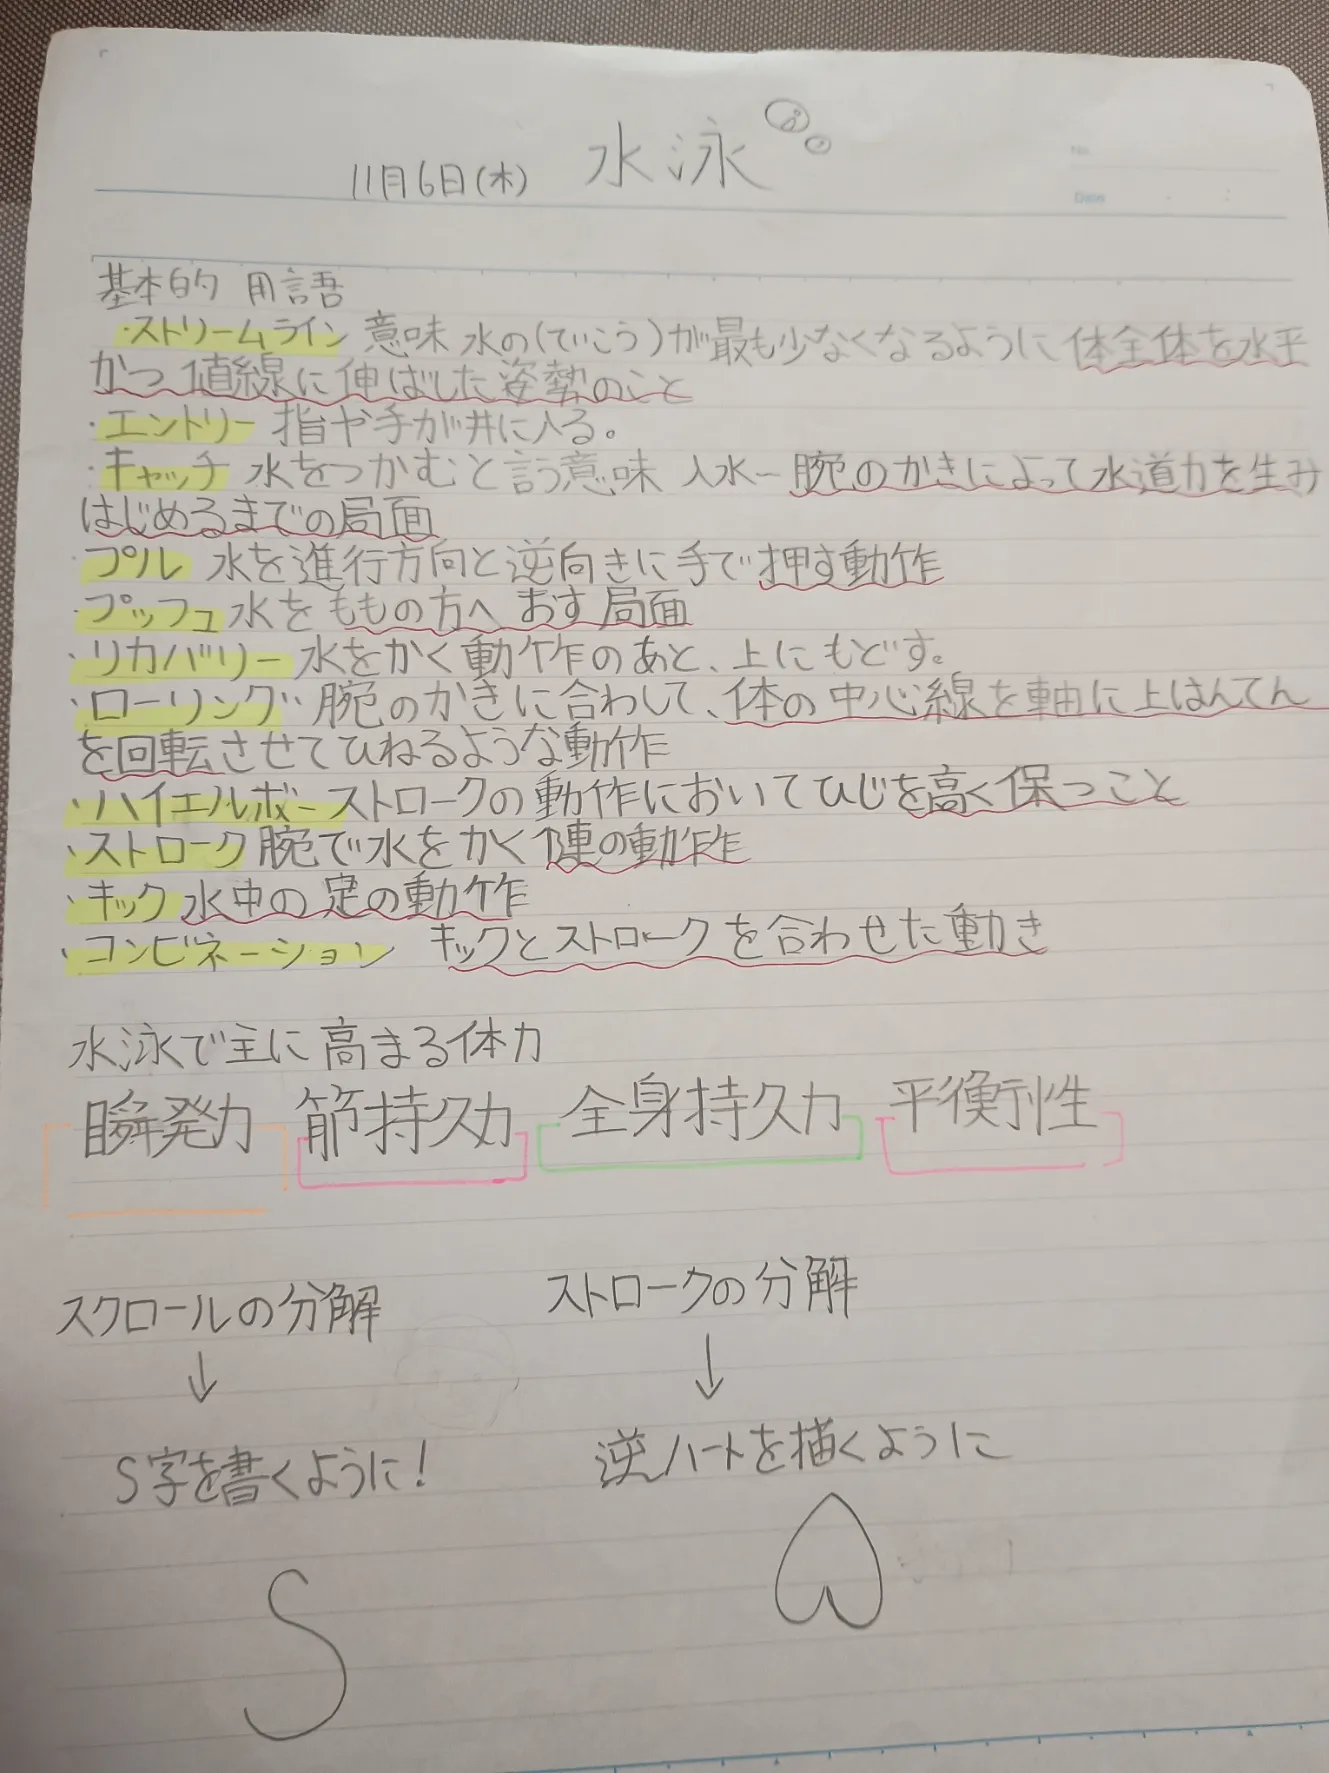 11月6日(木) 水泳
No
Date
基本的 用語
・ストリームライン 意味 水の(ていこう)が最も少なくなるように体全体を水平
かつ1直線に伸ばした姿勢のこと
・エントリー 指や手が井に入る。
・キャッチ 水をつかむと言う意味 入水ー腕のかきによって水道力を生み
はじめるまでの局面
・プル 水を進行方向と逆向きに手で押す動作
・プッシュ 水をももの方へおす局面
・リカバリー 水をかく動作のあと、上にもどす。
・ローリング 腕のかきに合わして、体の中心線を軸に上はんてん
を回転させてひねるような動作
・ハイエルボーストロークの動作においてひじを高く保つこと
・ストローク 腕で水をかく1連の動作
・キック 水中の足の動作
・コンビネーション キックとストロークを合わせた動き
水泳で主に高まる体力
瞬発力 筋持久力 全身持久力 平衡性
スクロールの分解 ストロークの分解
↓ ↓
S字を書くように! 逆ハートを描くように
S